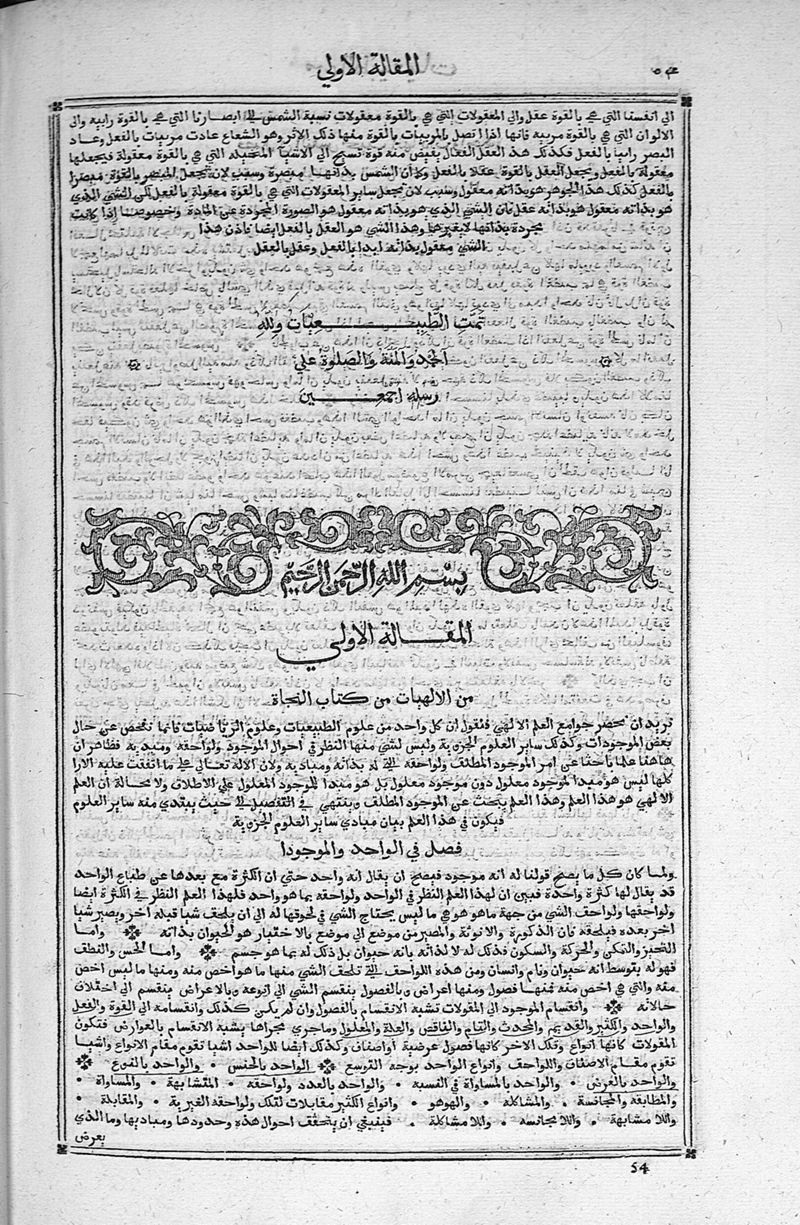 المقالة الاولي
الي انفسنا التي هي بالقوة عقل والي المعقولات التي هي بالقوة معقولات نسبة الشمس الي ابصارنا التي هي بالقوة رايية والي
الالوان التي هي بالقوة مريية فانها اذا اتصل بالمرييات بالقوة منها ذلك الاثر وهو الشعاع عادت مرييات بالفعل وعاد
البصر راييا بالفعل فكذلك هذ العقل الفعال يفيض منه قوة تسيح الي الاشيا المتخيله التي هي بالقوة معقولة فيجعلها
معقولة بالفعل ويجعل العقل بالقوة عقلا بالفعل وكما ان الشمس بذاتها مبصرة وسبب لان تجعل المبصر بالقوة مبصرا
بالفعل كذلك هذ الجوهر هو بذاته معقول وسبب لان يجعل ساير المعقولات التي هي بالقوة معقولة بالفعل لكن الشي الذي
هو بذاته معقول هو بذاته عقل فان الشي الذي هو بذاته معقول هو الصورة المجردة عن المادة وخصوصا اذا كانت
مجردة بذاتها لا بغيرها وهذا الشي هو العقل بالفعل ايضا فاذن هذا
الشي معقول بذاته ابدا بالفعل وعقل بالفعل
تمت الطبيعيات ولله
الحمد والمنة والصلوة علي
رسله اجمعين
بسم الله الرحمن الرحيم
المقالة الاولي
من الالهيات من كتاب النجاة
نريد ان نحصر جوامع العلم الالهي فنقول ان كل واحد من علوم الطبيعيات وعلوم الرياضيات فانما تفحص عن حال
بعض الموجودات وكذلك ساير العلوم الجزوية وليس لشي منها النظر في احوال الموجود ولواحقه ومباديه فظاهر ان
هاهنا علما باحثا عن امر الموجود المطلق ولواحقه التي له بذاته ومباديه ولان الاله تعالي علي ما اتفقت عليه الارا
كلها ليس هو مبدا لموجود معلول دون موجود معلول بل هو مبدا للموجود المعلول علي الاطلاق ولا محالة ان العلم
الالهي هو هذا العلم وهذا العلم يبحث عن الموجود المطلق وينتهي في التفصيل الي حيث يبتدي منه ساير العلوم
فيكون في هذا العلم بيان مبادي ساير العلوم الجزوية
فصل في الواحد والموجودا
ولما كان كل ما يصح قولنا له انه موجود فيصح ان يقال انه واحد حتي ان الكثرة مع بعدها عن طباع الواحد
قد يقال لها كثرة واحدة فبين ان لهذا العلم النظر في الواحد ولواحقه بما هو واحد فلهذا العلم النظر في الكثرة ايضا
ولواحقها ولواحق الشي من جهة ما هو هو هي ما ليس يحتاج الشي في لحوقها له الي ان يلحق شيا قبله اخر ويصير شيا
اخر بعده فيلحقه فان الذكورة والانوثة والمصير من موضع الي موضع بالاختيار هو للحيوان بذاته واما
التحيز والتمكن والحركة والسكون فذلك له لا لذاته بانه حيوان بل ذلك له بما هو جسم واما الحس والنطق
فهو له بتوسط انه حيوان ونام وانسان ومن هذه اللواحق التي تلحق الشي منها ما هو اخص منه ومنها ما ليس اخص
منه والتي هي اخص منه فمنها فصول ومنها اعراض وبالفصول ينقسم الشي الي انوعه وبالاعراض ينقسم الي اختلاف
حالاته وانقسام الموجود الي المقولات تشبه الانقسام بالفصول وان لم يكن كذلك وانقسامه الي القوة والفعل
والواحد والكثير والقديم والمحدث والتام والناقص والعلة والمعلول وما جري مجراها يشبه الانقسام بالعوارض فتكون
المقولات كانها انواع وتلك الاخر كانها فصول عرضية او اصناف وكذلك ايضا للواحد اشيا تقوم مقام الانواع واشيا
تقوم مقام الاصناف واللواحق وانواع الواحد بوجه التوسع الواحد بالجنس والواحد بالنوع
والواحد بالعرض والواحد بالمساواة في النسبه والواحد بالعدد ولواحقه المتشابهة والمساواة
والمطابقة والمجانسة والمشاكلة والهوهو وانواع الكثير مقابلات لتلك ولواحقه الغيرية والمقابلة
واللا مشابهة واللا مجانسه واللا مشاكلة فينبغي ان يتحقق احوال هذه وحدودها ومباديها وما الذي
يعرض
54